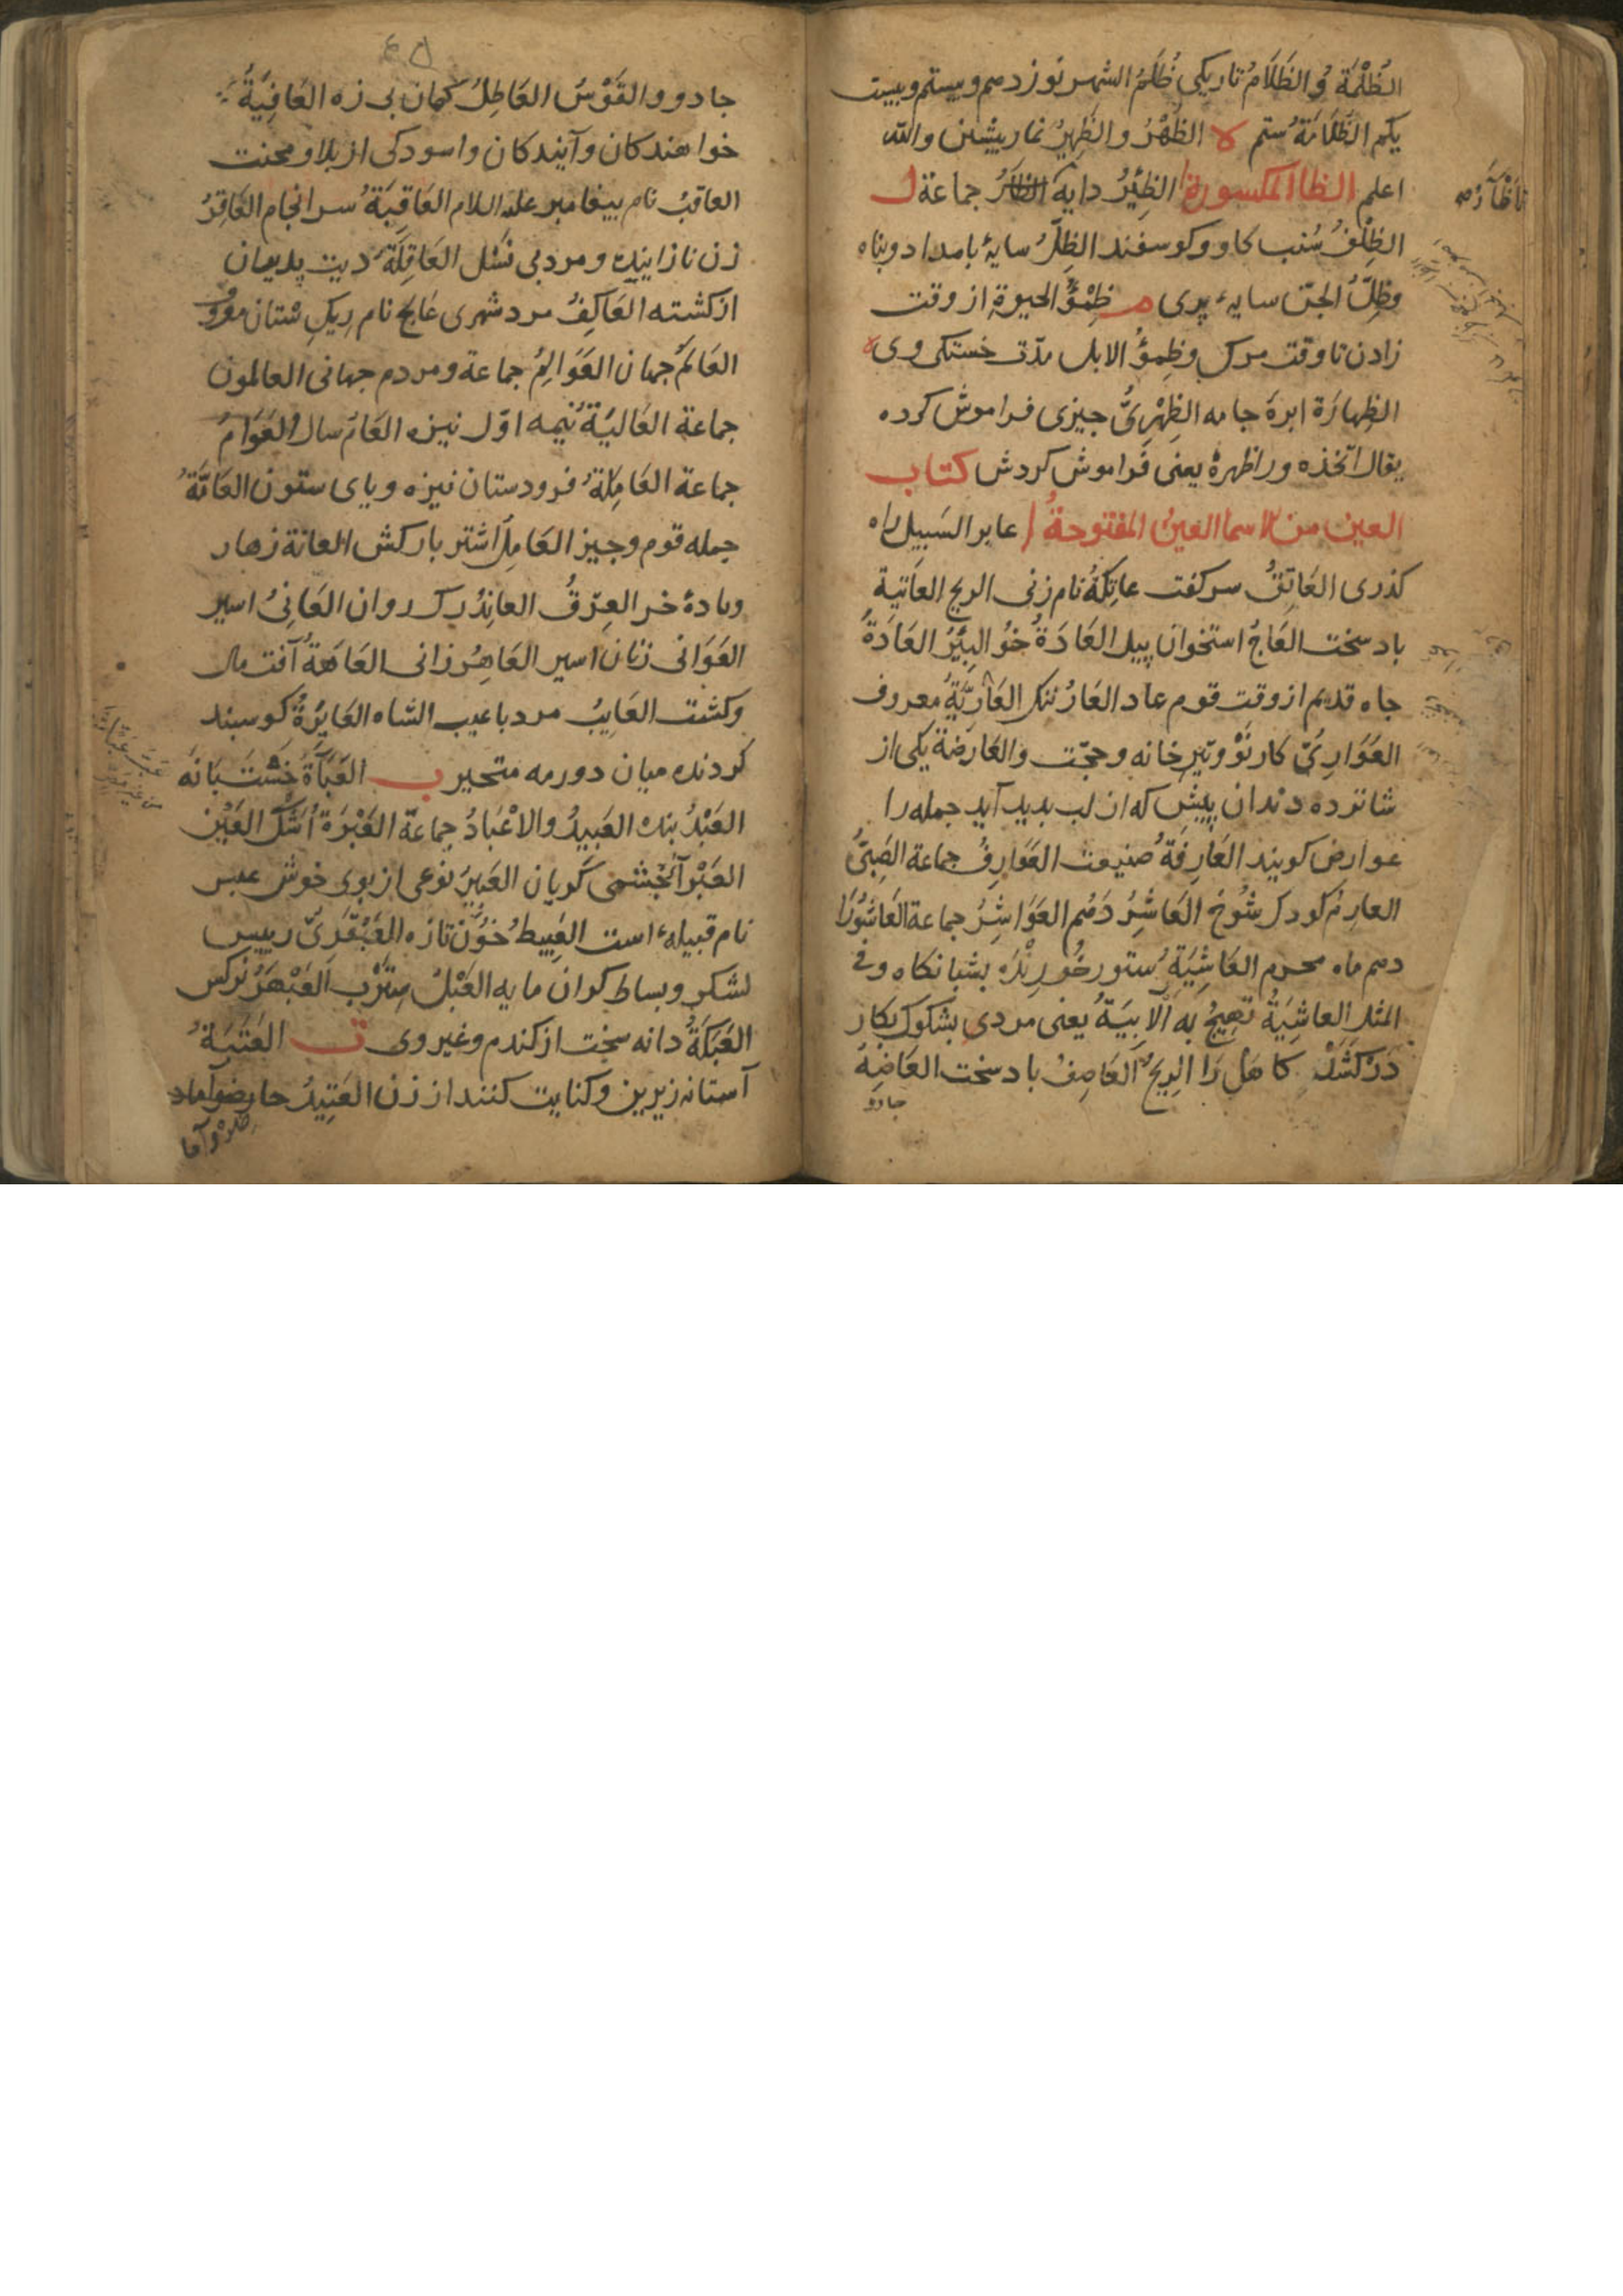 الظُلْمَةُ والظَلَامُ تاریکی ظُلَمُ الشهر نوزدهم وبیستم وبیست
یکم الظُلَامَةُ ستم ه الظُهْرُ والظَهِیرُ نماز پیشین والله
اعلم الظا المکسورة الظِئْرُ دایه جماعة ل
الظِلْفُ سُنب کاو وکوسفند الظِلُّ سایهٔ بامداد وپناه
وظِلُّ الجنّ سایهٔ پری م ظِمْؤُ الحیوة از وقت
زادن تا وقت مرک وظِمؤُ الابل مدّت خستکی وی ه
الظِهارَة ابرهٔ جامه الظِهْرِیُّ چیزی فراموش کرده
یقال اتّخذه وراظهرهٔ یعنی فراموش کردش کتاب
العین من الاسما العین المفتوحةُ ا عابر السَبیل راه
کذری العَاتِقُ سر کفت عاتِکَةُ نام زنی الریح العَاتیة
باد سخت العَاجُ استخوان پیل العَادَةُ خو البِئرُ العَادَةُ
چاه قدیم از وقت قوم عاد العَارُ ننک العَارِیَّةُ معروف
العَوَارِیُّ کار نَوْ وتیر خانه وحجّت والعَارِضَة یکی از
شانزده دندان پیش که از لب بدید آید جمله را
عوارض کویند العَارِفَةُ صنیعت العَوَارِفُ جماعة الصَبِیُّ
العارِمُ کودک شُوخ العَاشِرُ دَهُم العَوَاشِرُ جماعة العَاشُورَا
دهم ماه محرم العَاشِیَةُ ستور خُورنْدَه بشبانکاه وفی
المثل العاشِیَةُ تهِیجُ به الآبِیَةُ یعنی مردی بشکول بکار
دَرْ کَشَدْ کاهِل رَا الرِیحُ العَاصِفُ باد سخت العَاضِهُ
جادو
جادو والقَوْسُ العَاطِلُ کمان بی زه العَافِیَةُ
خواهندکان وآیندکان واسودکی از بلا ومحنت
العاقبُ نام پیغامبر علیه السلام العَاقِبَةُ سرانجام العَاقِرُ
زن نازاینده ومرد بی نَسْل العَاقِلَةُ دیت پذیران
از کشته العَاکِفُ مرد شهری عَالِج نام ریکِ ستان
العَالَمُ جهان العَوَالِمُ جماعة ومردم جهانی العالمون
جماعة العَالِیَةُ نیمه اوّل نیزه العَامُ سال العَوَامُ
جماعة العَامِلَةُ فرودستان نیزه وپای ستون العَامَّةُ
جمله قوم وچیز العَامِلُ اشتر بارکش العانة زهار
ومادهٔ خر العِرْقُ العانِدُ رک روان العَانِیُ اسیر
العَوَانی زنان اسیر العَاهِرُ زانی العَاهَةُ آفت مال
وکشت العَایِبُ مرد با عیب الشاه العَایِرَةُ کوسبند
کردنده میان دو رمه متحیر ب العَبَآةُ
العَبْدُ بنده العَبِیدُ والاعْبَادُ جماعة العَبْرَةُ اشک العَیْن
العَبْرَآ بخشمی کریان العَبِیرُ نوعی از بوی خوش عبس
نام قبیلهٔ است العَبِیطُ خون تازه العَبْقَرِیُّ رییس
لشکر وبساط کران مایه العَبْلُ سِتَبْر العَبْهَرُ نرکس
العَبَکَةُ دانه سخت از کندم وغیر وی ت العَتَبَةُ
آستانه زیرین وکنایت کنند از زن العَتِیدُ